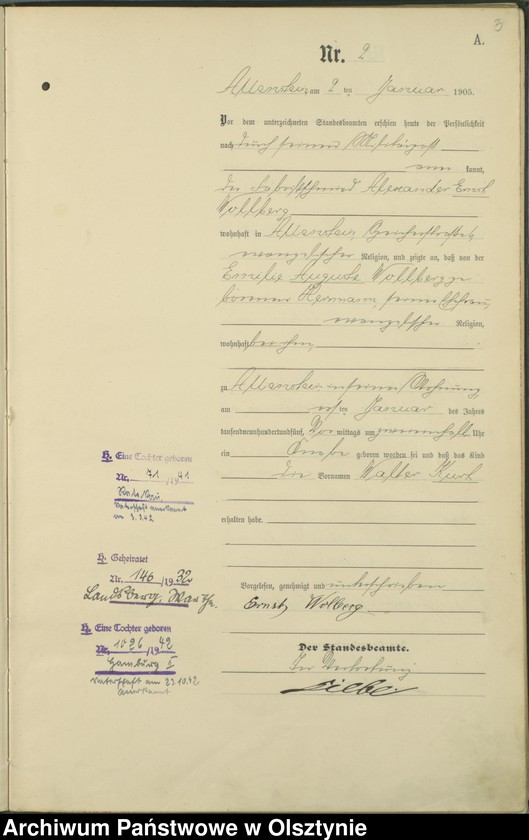 3
A.
Nr. 2
Allenstein am 2 ten Januar 1905.
Vor dem unterzeichneten Standesbeamten erschien heute der Persönlichkeit
nach durch seinen
kannt,
der Alexander Ernst
Wollberg
wohnhaft in Allenstein,
evangelischer Religion, und zeigte an, daß von der
Emilie Auguste Wollberg ge
borenen Hermann, seiner Ehefrau,
evangelischer Religion,
wohnhaft bei ihm,
zu Allenstein in seiner Wohnung
am ersten Januar des Jahres
tausendneunhundertundfünf, Vor mittags um zwei einhalb Uhr
ein Knabe geboren worden sei und daß das Kind
die Vornamen Walter Kurt
erhalten habe.
Vorgelesen, genehmigt und unterschrieben
Ernst Wolberg
Der Standesbeamte.
In Vertretung
H. Eine Tochter geboren
Nr. 71 /1941
Vaterschaft anerkannt
am 3.3.42
H. Geheiratet
Nr. 146 /1932
Landsberg, Warthe.
H. Eine Tochter geboren
Nr. 1026 /1942
Hamburg I
Vaterschaft am 23.10.42
anerkannt
Archiwum Państwowe w Olsztynie